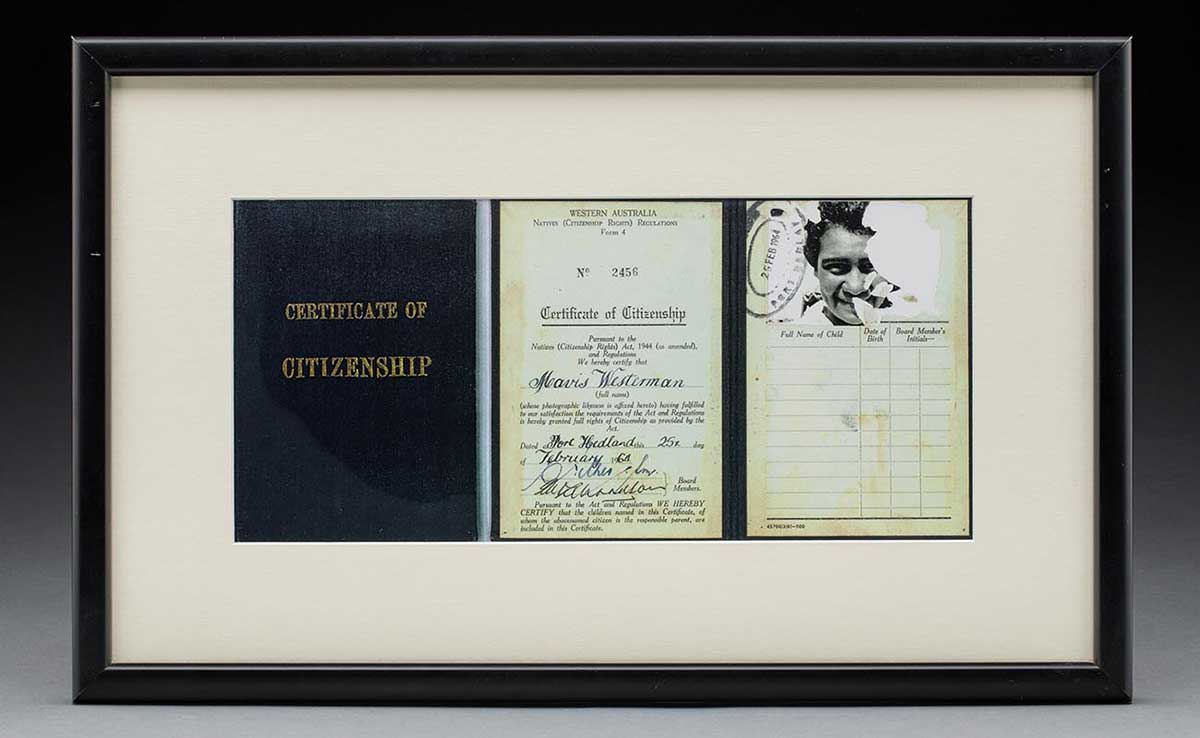 CERTIFICATE OF
CITIZENSHIP
WESTERN AUSTRALIA
NATIVES (CITIZENSHIP RIGHTS) REGULATIONS
Form 4
No 2456
Certificate of Citizenship
Pursuant to the
Natives (Citizenship Rights) Act, 1944 (as amended),
and Regulations
We hereby certify that
Mavis Westerman
(full name)
(whose photographic likeness is affixed hereto) having fulfilled
to our satisfaction the requirements of the Act and Regulations
is hereby granted full rights of Citizenship as provided by the
Act.
Dated at Port Hedland this 25th day
of February 1964
Board
Members.
Pursuant to the Act and Regulations WE HEREBY
CERTIFY that the children named in this Certificate, of
whom the abovenamed citizen is the responsible parent, are
included in this Certificate.
25 FEB 1964
PORT HEDLAND
Full Name of Child
Date of
Birth
Board Member's
Initials—